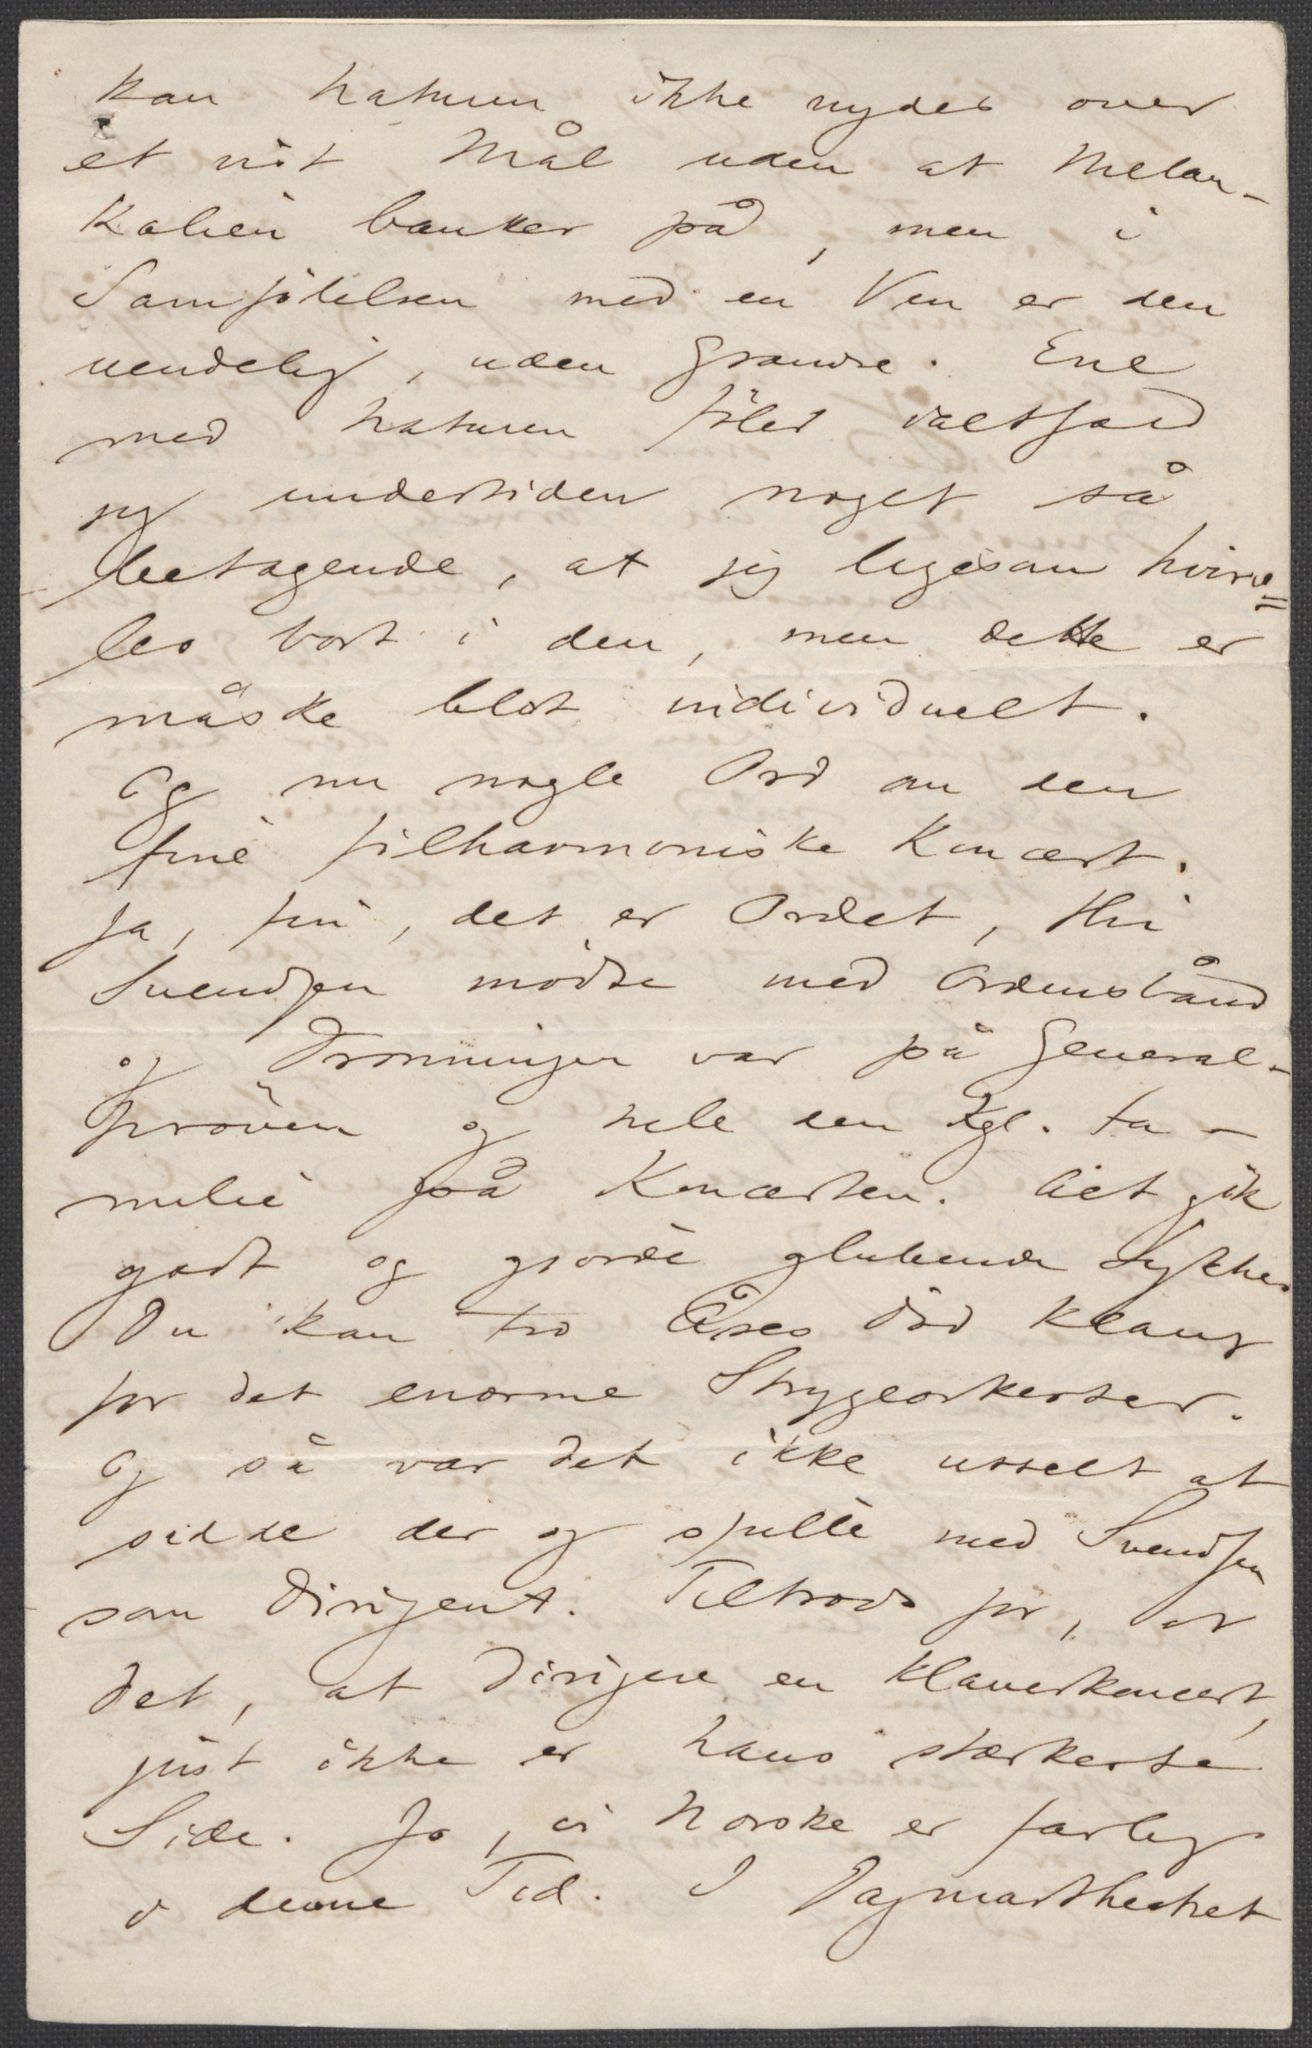 kan Naturen ikke nydes over
et vist Mål uden at Melan-
kolien banker på, men i
Samfølelsen med en Ven er den
uendelig, uden Grændse. Ene
med Naturen føler ialtfald
jeg undertiden noget så
betagende, at jeg ligesom hvirv=
les bort i den, men dette er
måske blot individuelt.
Og nu nogle Ord om den
fine filharmoniske Koncert.
Ja, fin, det er Ordet, thi
Svendsen mødte med Ordensbånd
og Dronningen var på General-
prøven og hele den kgl. Fa-
milie på Koncerten. Alt gik
godt og gjorde glubende Lykke.
Du kan tro Åses Død klang
for det enorme Strygeorkester.
Og så var det ikke usselt at
sidde der og spille med Svendsen
som Dirigent. Tiltrods for, at
det, at dirigere en Klaverkoncert,
just ikke er hans stærkeste
Side. Jo, vi Norske er farlig
i denne Tid. I Dagmartheatret